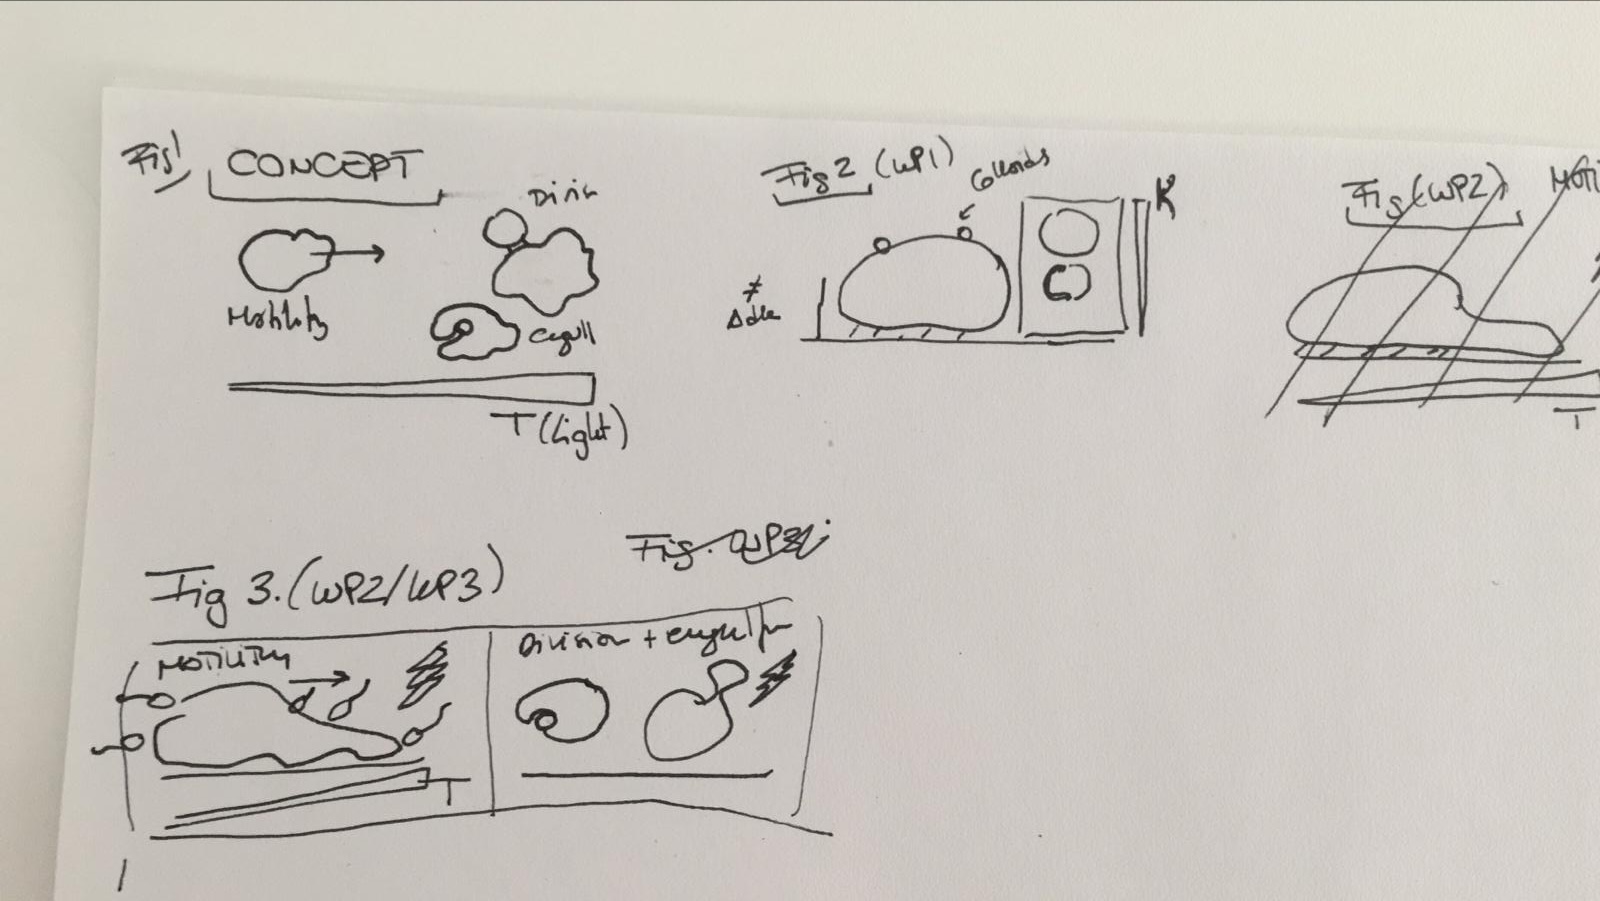 Fig 1 CONCEPT
Motility
Engulf
T (light)
Fig 2 (WP1)
Colloids
K
≠
Fig (WP2)
T
Fig. WP3
Fig 3. (WP2/WP3)
MOTILITY
T
Division +